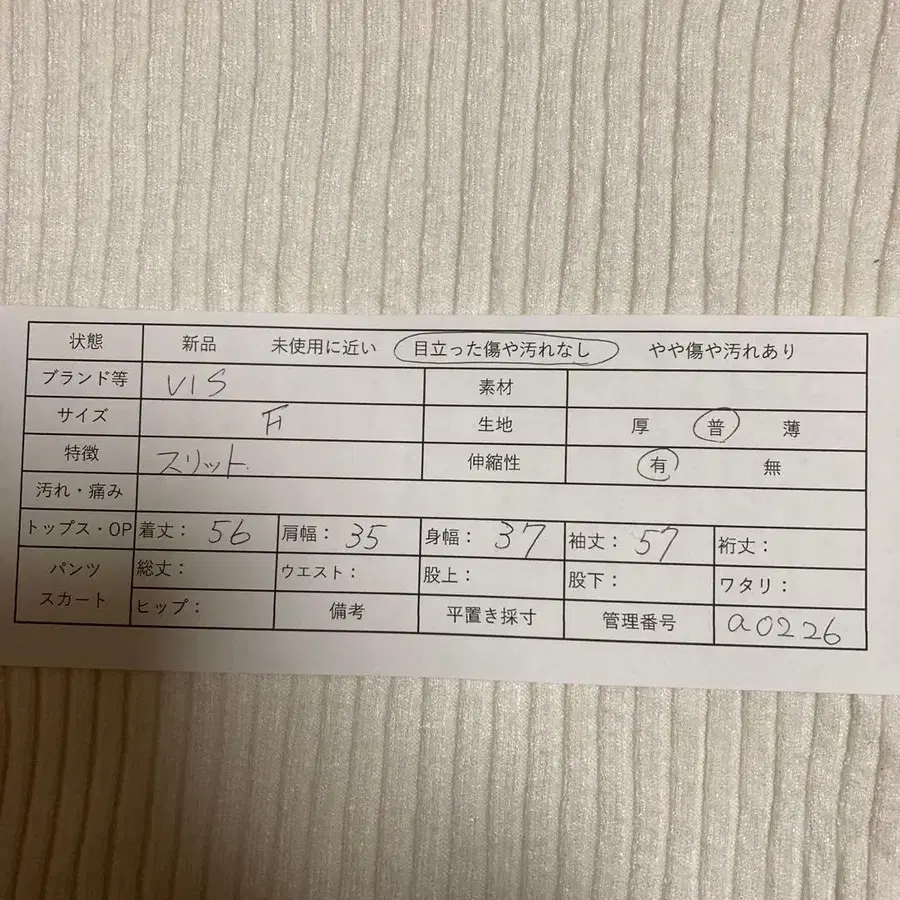 状態 新品 未使用に近い 目立った傷や汚れなし やや傷や汚れあり
ブランド等 VIS 素材
サイズ F 生地 厚 普 薄
特徴 スリット. 伸縮性 有 無
汚れ・痛み
トップス・OP 着丈： 56 肩幅： 35 身幅： 37 袖丈： 57 裄丈：
パンツ 総丈： ウエスト： 股上： 股下： ワタリ：
スカート ヒップ： 備考 平置き採寸 管理番号 a0226